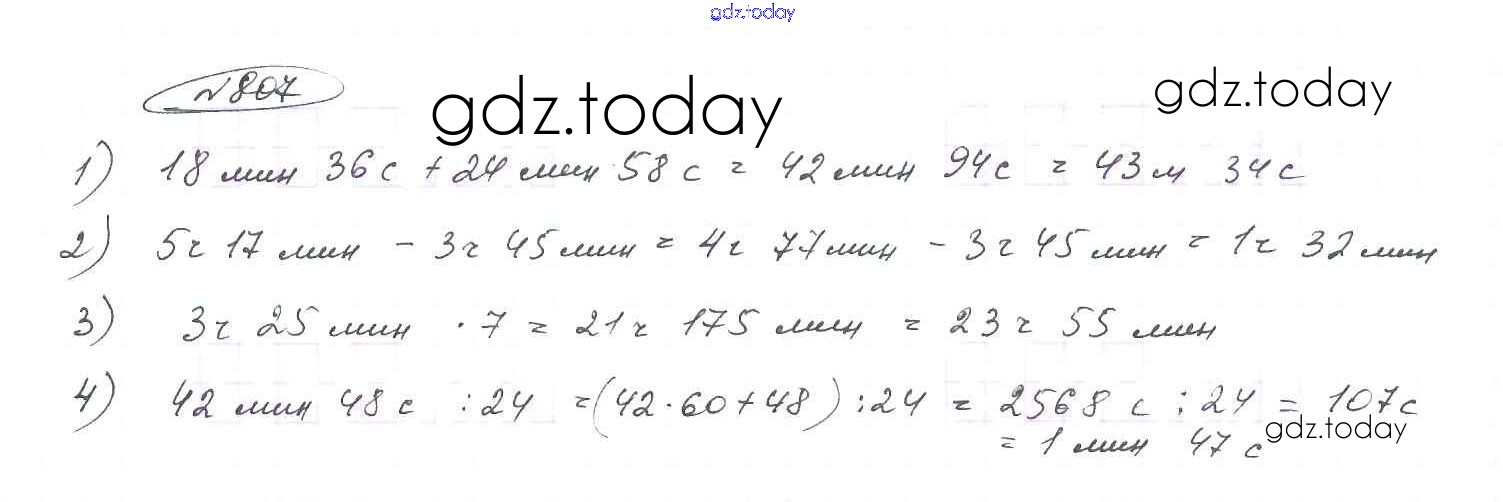 gdz.today
№807
gdz.today
gdz.today
1) 18 мин 36 с + 24 мин 58 с = 42 мин 94 с = 43 м 34 с
2) 5 ч 17 мин - 3 ч 45 мин = 4 ч 77 мин - 3 ч 45 мин = 1 ч 32 мин
3) 3 ч 25 мин · 7 = 21 ч 175 мин = 23 ч 55 мин
4) 42 мин 48 с : 24 = (42·60+48) : 24 = 2568 с : 24 = 107 с
= 1 мин 47 с
gdz.today